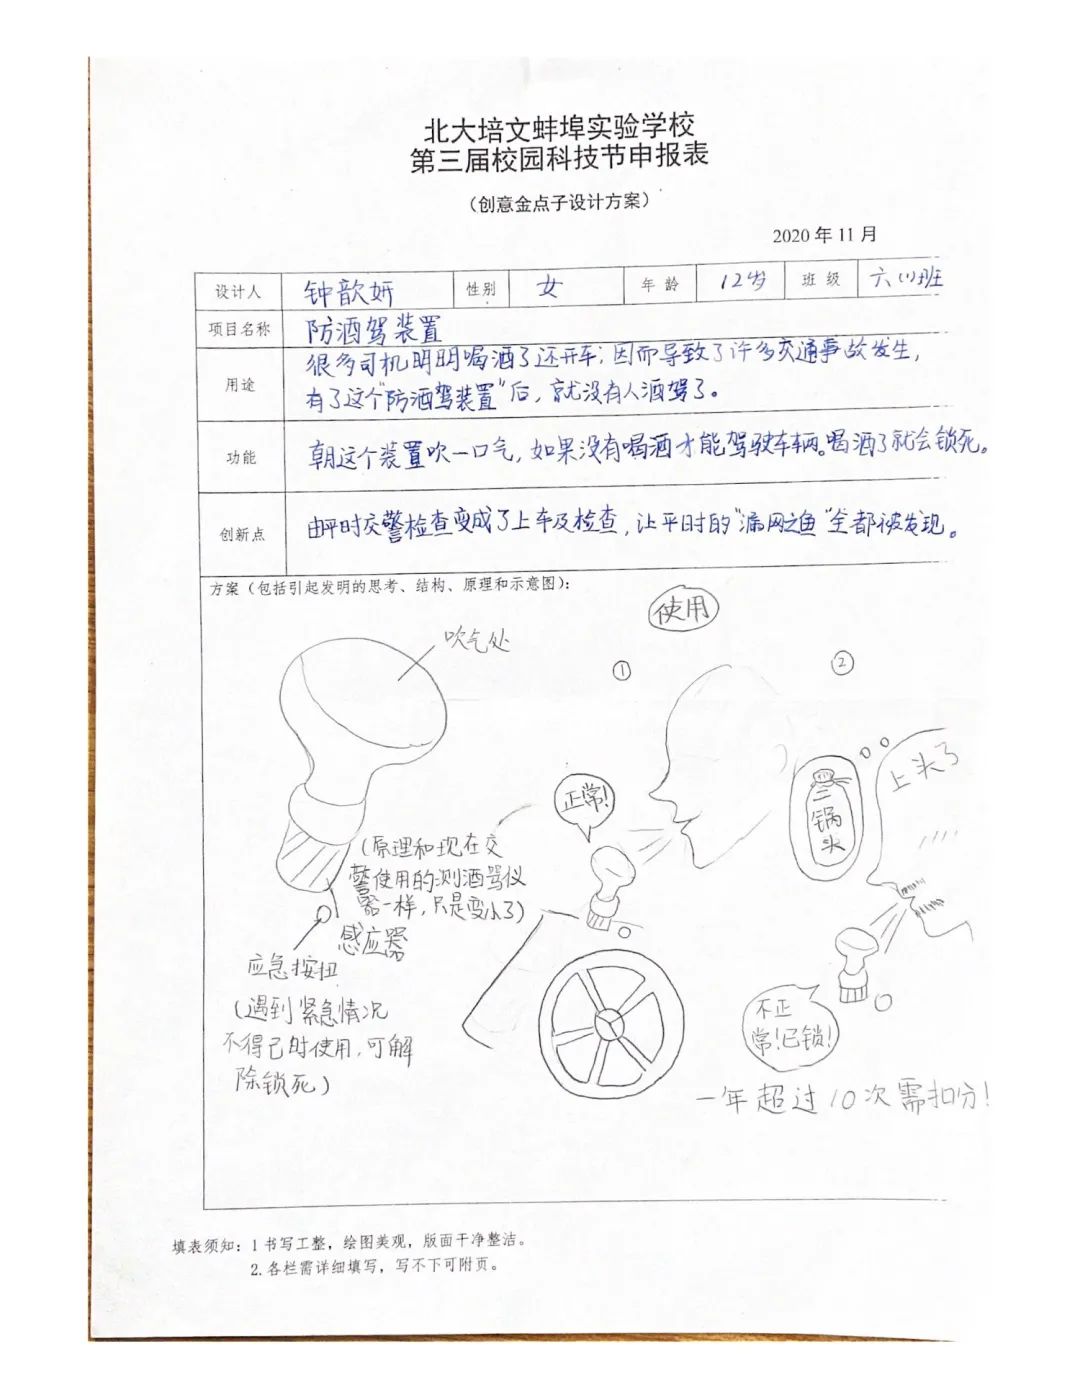 北大培文蚌埠实验学校
第三届校园科技节申报表
（创意金点子设计方案）
2020 年 11 月
设计人 钟歆妍 性别 女 年 龄 12岁 班 级 六(1)班
项目名称 防酒驾装置
用途 很多司机明明喝酒了还开车;因而导致了许多交通事故发生,
有了这个"防酒驾装置"后，就没有人酒驾了。
功能 朝这个装置吹一口气,如果没有喝酒才能驾驶车辆。喝酒了就会锁死。
创新点 由平时交警检查变成了上车及检查,让平时的"漏网之鱼"全都被发现。
方案（包括引起发明的思考、结构、原理和示意图）:
使用
吹气处
①
②
正常!
二锅头
上头了
(原理和现在交
警使用的测酒驾仪
器一样,只是变小了)
感应器
应急按扭
(遇到紧急情况
不得已时使用,可解
除锁死)
不正
常!已锁!
一年超过10次需扣分!
填表须知：1 书写工整，绘图美观，版面干净整洁。
2. 各栏需详细填写，写不下可附页。